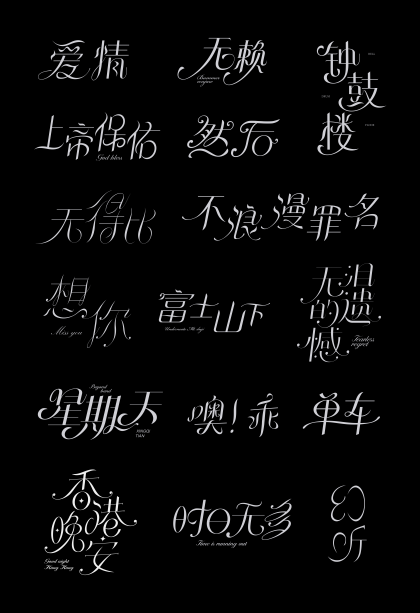 爱情
无赖
钟鼓楼
上帝保佑
God bless
然后
无得比
不浪漫罪名
想你
Miss you
富士山下
无泪的遗憾
Tearless regret
星期天
XINGQI
TIAN
噢！乖
单车
香港晚安
Good night
Hong Kong
时日无多
Time is running out